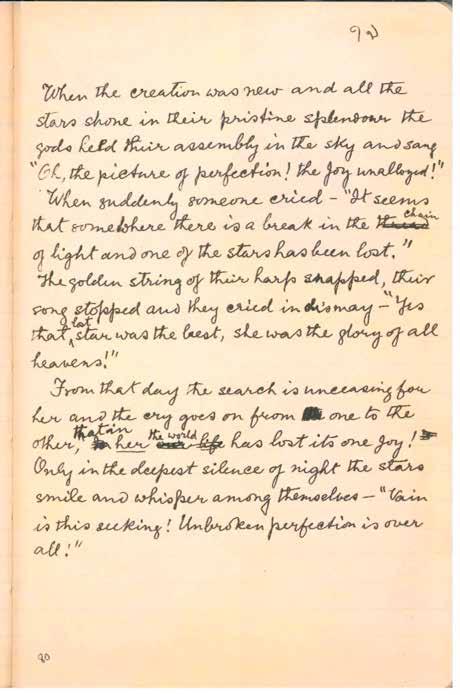 ৭৮
When the creation was new and all the
stars shone in their pristine splendour the
gods held their assembly in the sky and sang
"Oh, the picture of perfection! the joy unalloyed!"
When suddenly someone cried – "It seems
that somewhere there is a break in the thread chain
of light and one of the stars has been lost."
The golden string of their harp snapped, their
song stopped and they cried in dismay – "Yes
that lost star was the best, she was the glory of all
heavens!"
From that day the search is unceasing for
her and the cry goes on from one to the
other, that in her the world our life has lost its one joy!
Only in the deepest silence of night the stars
smile and whisper among themselves – "Vain
is this seeking! Unbroken perfection is over
all!"